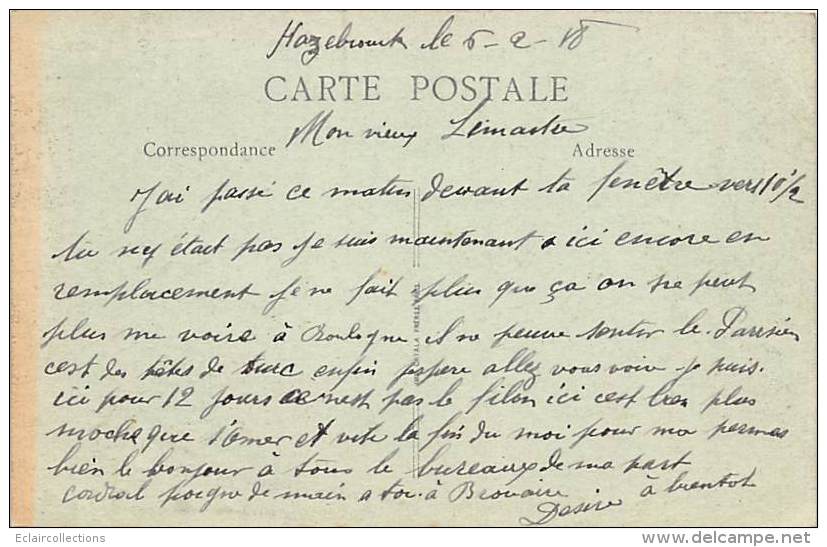 Hazebrouck le 6-2-18
CARTE POSTALE
Mon vieux Lemaitre
Correspondance
Adresse
J'ai passé ce matin devant ta fenêtre vers 10 1/2
tu n'y était pas Je suis maintenant ici encore en
remplacement Je ne fait plus que ça on ne peut
plus me voire à Boulogne il ne peuve sentir le Parisien
c'est des têtes de turc enfin j'espere allez vous voir je suis
ici pour 12 jours ce n'est pas le filon ici c'est bien plus
moche que s'Omer et vite la fin du moi pour ma permes
bien le bonjour à tous le bureaux de ma part
cordial poigne de main a toi à
Desiré à bientot
Eclaircollections
www.delcampe.net